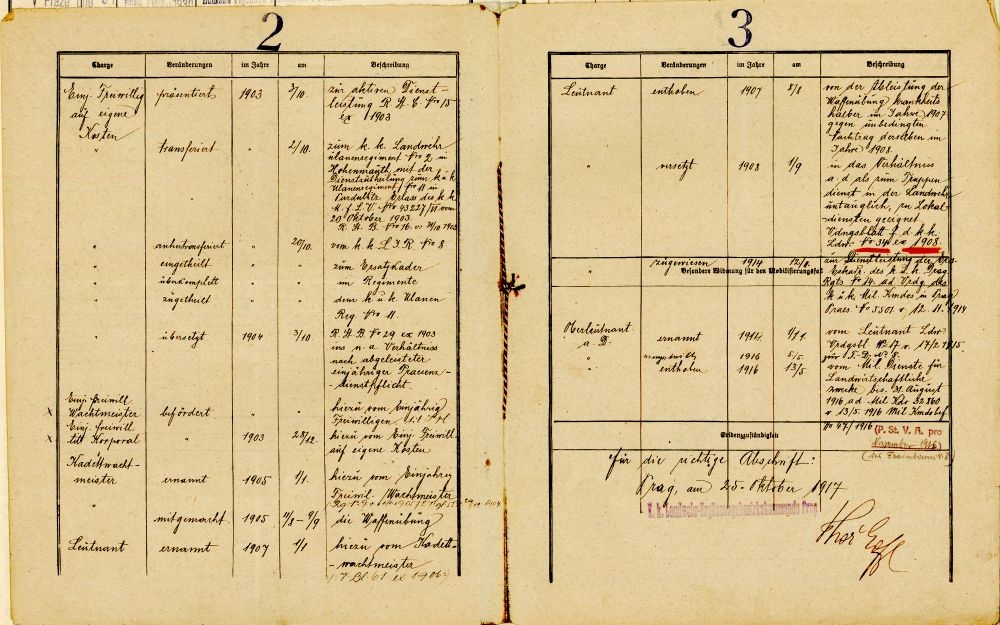 2
Charge Veränderungen im Jahre am Beschreibung
Einj. Freiwillig präsentiert 1903 3/10. zur aktiven Dienst-
auf eigene leistung R. H. B. No 15
Kosten ex 1903
" transferiert " 2/10. zum k. k. Landwehr
Ulanenregiment No 2 in
Hohenmauth mit der
Dienstzutheilung zum k. u. k.
Ulanenregiment No 11 in
Pardubitz Erlass des k. k.
M. f. L. V. No 43227/ vom
20 Oktober 1903.
R. H. B. No 16 1903
" anhertransferiert " 20/10. vom k. k. L. I. R. No 8
" eingetheilt " zum Ersatzkader
" überkomplett " im Regimente
" zugetheilt " dem k. u. k. Ulanen
Reg. No 11.
" übersetzt 1904 3/10. R. H. B. No 29 ex 1903
ins n. a. Verhältniss
nach abgeleisteter
einjähriger Praesenz-
-dienstpflicht.
Einj. freiwill
x Wachtmeister befördert " hiezu vom Einjährig
Einj. freiwill Freiwilligen
x tit Korporal " 1903 28/12. hiezu vom Einj. Freiwill.
auf eigene Kosten
Kadettwacht-
meister ernannt 1905 1/1. hiezu vom Einjährig
Freiwil. Wachtmeister
" mitgemacht 1905 11/8 - 7/9 die Waffenübung
Leutnant ernannt 1907 1/1 hiezu vom Kadett-
-wachtmeister
Bl. 61 ex 1906.
3
Charge Veränderungen im Jahre am Beschreibung
Leutnant enthoben 1907 5/8 von der Ableistung der
Waffenübung krankheits
halber im Jahre 1907
gegen unbedingten
Nachtrag derselben im
Jahre 1908.
" versetzt 1908 1/9 in das Verhältniss
a. d. als zum Truppen-
dienst in der Landwehr
untauglich, zu Lokal-
-diensten geeignet
Vdngsblatt f. d. k. k.
Ldw. No 34 ex 1908.
" zugewiesen 1914 12/8. zur Dienstleistung der
Besondere Widmung für den Mobilisierungsfall
Eskadr. des k. u. k. Drag.
Rgts No 14. ad Vrdg des
k. u. k. Mil. Kmdos in Prag
Praes. No 5501 v. 12. 11. 1914
Oberleutnant ernannt 1914 1/11. vom Leutnant Ldw
a. D. Vrdgsbl. No 17 v. 17/2 1915.
" 1916 5/5.
" enthoben 1916 13/5. vom Mil. Dienste für
Landwirtschaftliche
Zwecke bis 31. August
1916 ad. Mil Kdo 32860
v. 13/5. 1916 Mil Kmdobef
No 47/1916 (P. St. V. A. pro
Evidenzzuständigkeit
November 1916)
Für die richtige Abschrift:
Prag, am 25. Oktober 1917
K. k. Landwehr-Ergänzungsbezirkskommando Prag